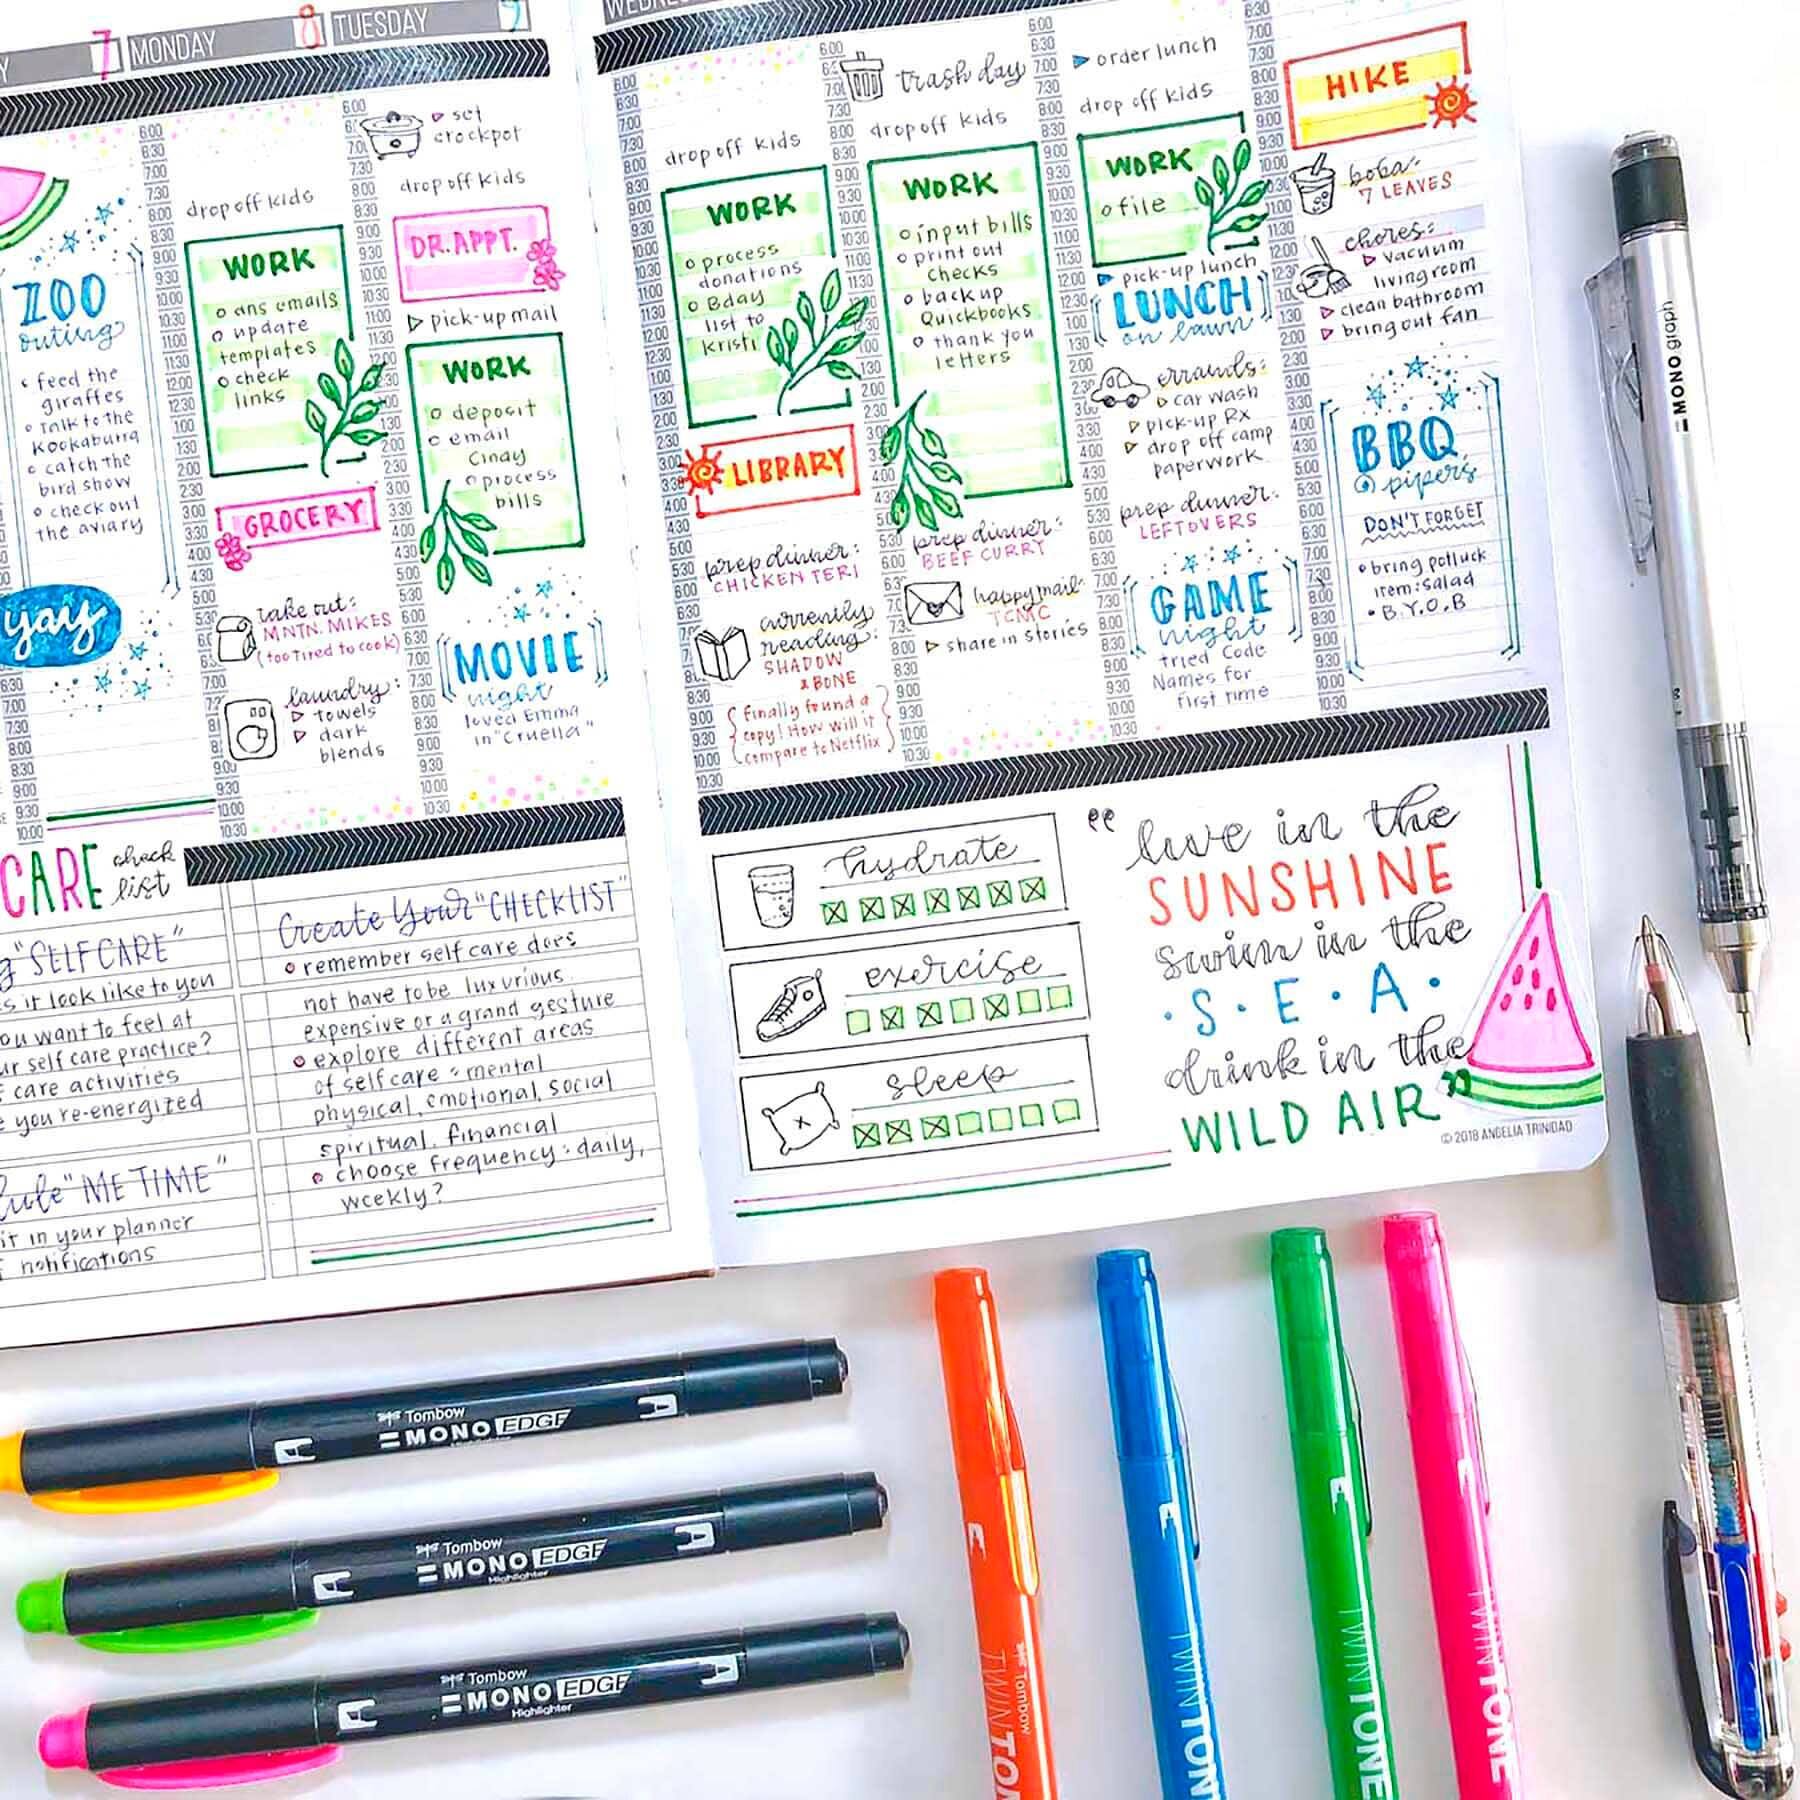 Y
7
MONDAY
8
TUESDAY
9
ZOO
outing
feed the
giraffes
talk to the
Kookaburra
catch the
bird show
check out
the aviary
yay
drop off kids
WORK
ans emails
update
templates
check
links
GROCERY
take out:
MNTN. MIKES
(too tired to cook)
laundry:
towels
dark
blends
set
crockpot
drop off kids
DR. APPT.
pick-up mail
WORK
deposit
email
Cindy
process
bills
MOVIE
night
loved Emma
in "Cruella"
drop off kids
WORK
process
donations
Bday
list to
Kristi
LIBRARY
prep dinner:
CHICKEN TERI
currently
reading:
SHADOW
& BONE
finally found a
copy! How will it
compare to Netflix
trash day
drop off kids
WORK
input bills
print out
checks
backup
Quickbooks
thank you
letters
prep dinner:
BEEF CURRY
happy mail:
TCMC
share in stories
order lunch
drop off kids
WORK
file
pick-up lunch
LUNCH
on lawn
errands:
car wash
pick-up Rx
drop off camp
paperwork
prep dinner:
LEFTOVERS
GAME
night
tried Code
Names for
first time
HIKE
boba:
7 LEAVES
chores:
vacuum
living room
clean bathroom
bring out fan
BBQ
@ pipers
DON'T FORGET
bring potluck
item: salad
B.Y.O.B
CARE check
list
"SELF CARE"
it look like to you
you want to feel at
self care practice?
care activities
you re-energized
"ME TIME"
it in your planner
notifications
Create Your "CHECKLIST"
remember self care does
not have to be luxurious
expensive or a grand gesture
explore different areas
of self care: mental
physical, emotional, social
spiritual, financial
choose frequency: daily,
weekly?
hydrate
exercise
sleep
"live in the
SUNSHINE
swim in the
·S·E·A·
drink in the
WILD AIR"
© 2018 ANGELIA TRINIDAD
MONO graph
Tombow
MONO EDGE
Tombow
MONO EDGE
Highlighter
Tombow
MONO EDGE
Highlighter
Tombow
TWINTON
TWINTONE
TWINTONE
TWINTONE